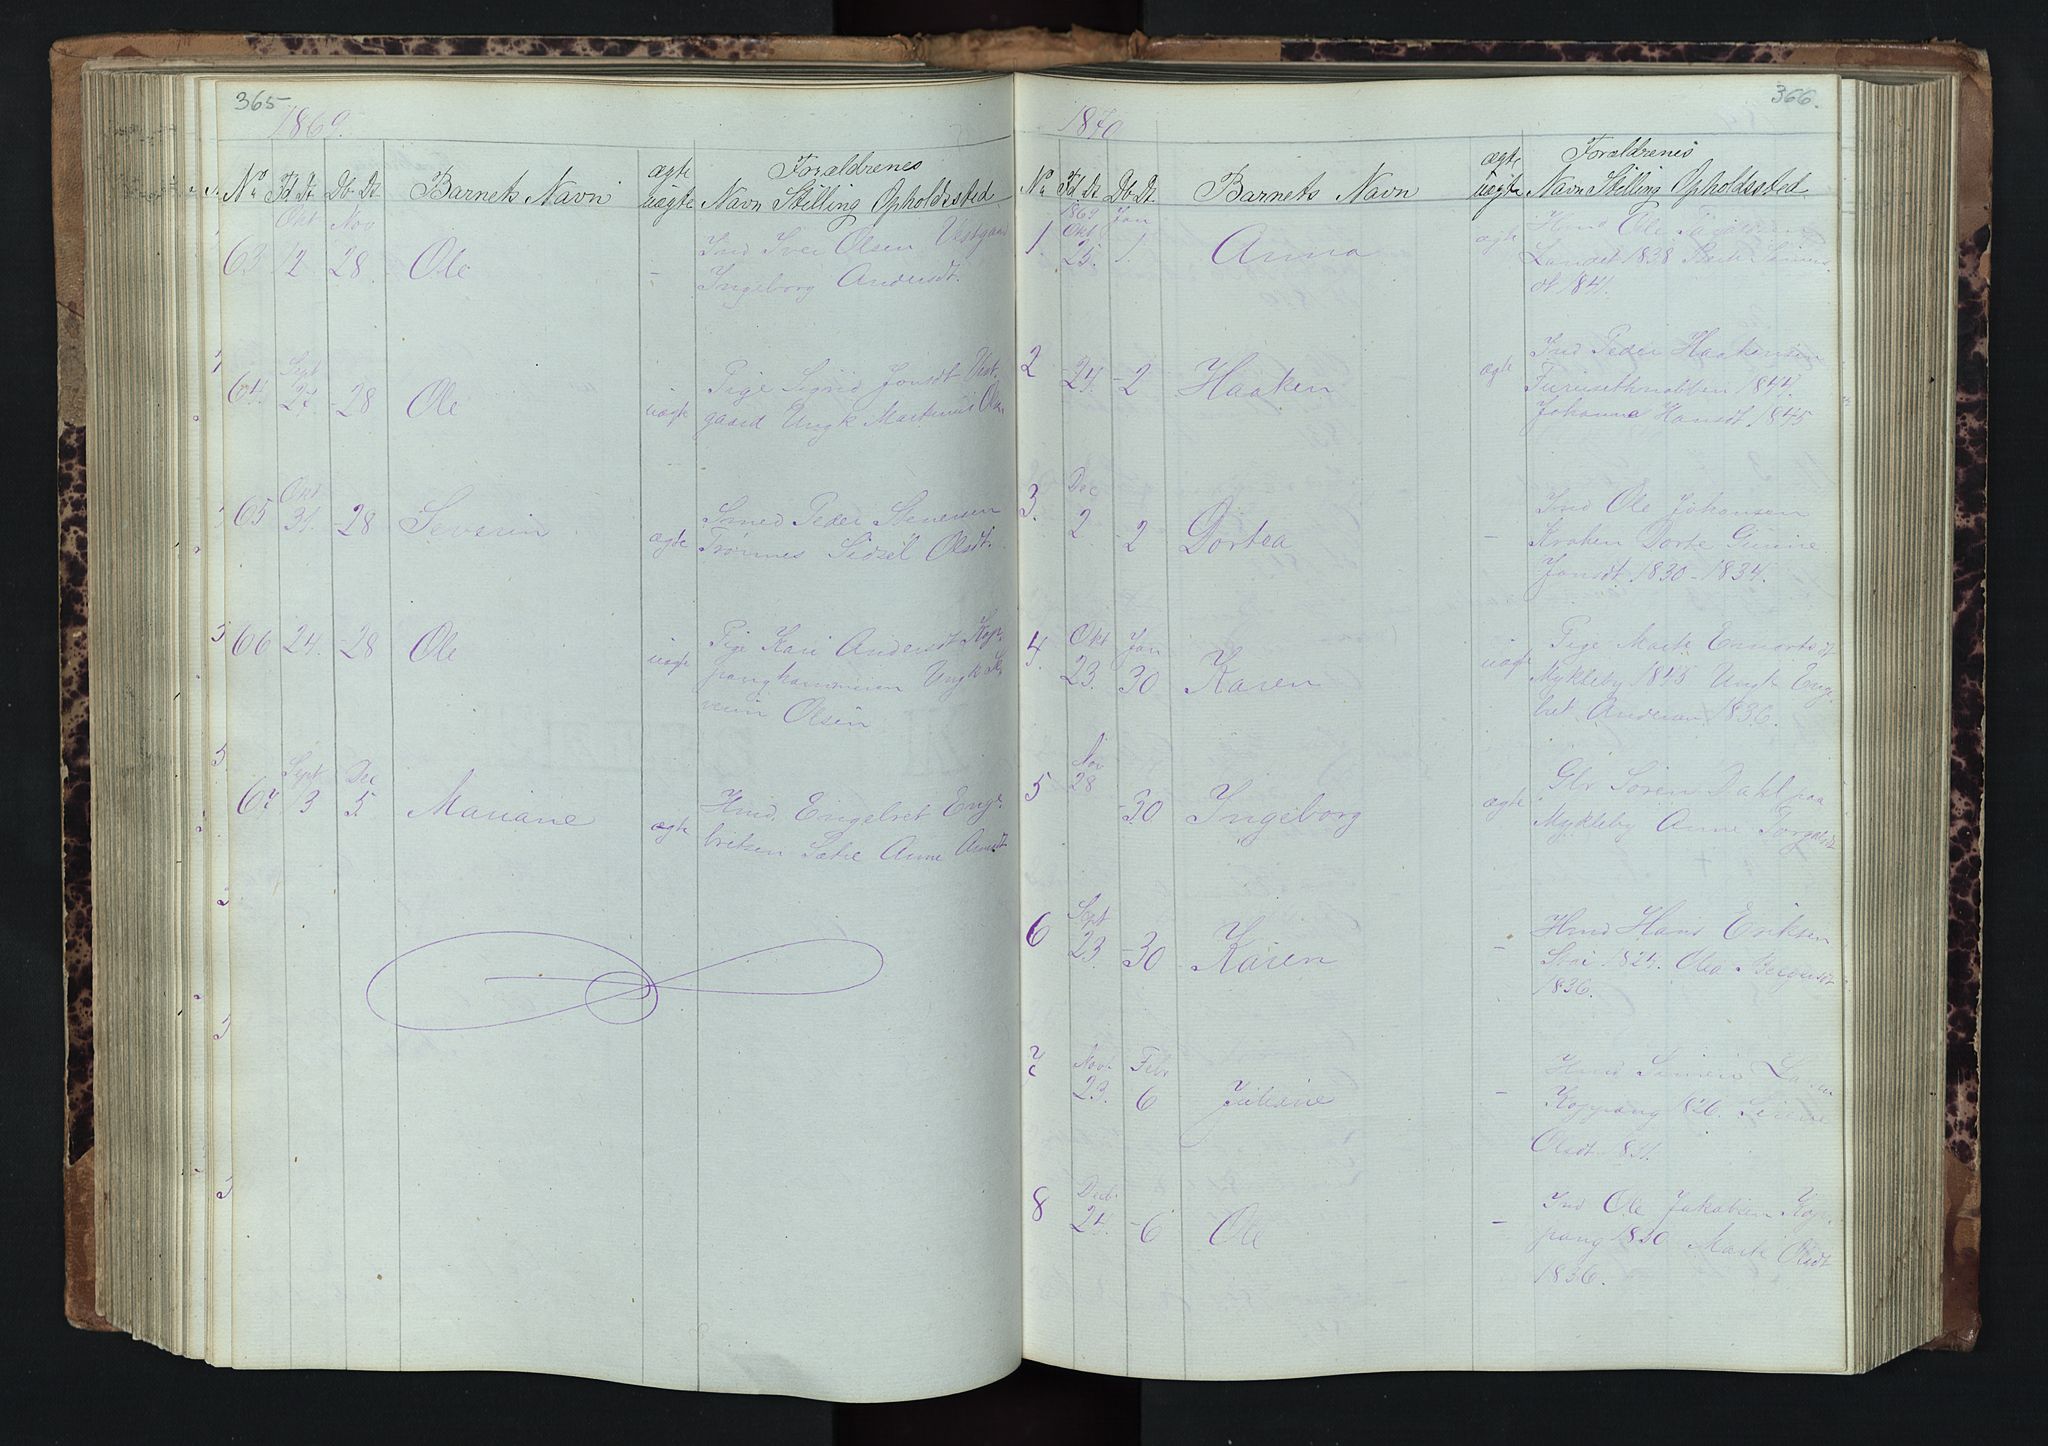 365
1869.
No Fd. Dt. Db. Dt. Barnets Navn ægte uægte Forældrenes
Navn Stilling Opholdssted
Okt Nov
63 12 28. Ole - Ind Iver Olsen Vestgaard
Ingeborg Andersdt.
Sept
64. 27 -28 Ole uægte Pige Sigrid Jonsdt Vest-
gaard Ungk Martinus
Okt
65 31. -28 Severin ægte Smed Peder Stenersen
Trønnes Sidsel Olsdt.
66 24. -28 Ole uægt Pige Kari Andersdt Kop-
panghammeren Ungk Se-
verin Olsen
Sept Dec
67 3 5. Mariane ægte Hmd. Engebret Enge-
britsen Sætre Anne Arnesdt
366.
1870
No Fd. Dt. Db. Dt. Barnets Navn ægte uægte Forældrenes
Navn Stilling Opholdssted
1869 Jan
1. Okt 25. 1. Anna ægte Hmd Ole
Landet 1838
dt 1841.
2 24. -2 Haaken ægte Ind Peder Haakensen
Furusethknobben 1844.
Johanne Hansdt 1845
Dec
3. 2 -2 Dortea - Ind Ole Johansen
Kroken Dorte Gunine
Jonsdt 1830 - 1834.
Okt Jan
4. 23. 30 Karen uægt Pige Marte
Mykleby 1843 Ungk Enge-
bret Andersen 1836.
Nov
5 28 -30 Ingeborg ægte Glr Søren Dahl paa
Mykleby Anne Torgalsdt
Sept
6 23. -30 Karen - Hmd Hans Eriksen
1824. Olea
1836.
Novb Febr
7 23. 6 Juliane - Hmd Simen
Koppang 1826. Serine
Olsdt 1831.
Decb
8 24. -6 Ole - Ind Ole Jakobsen Kop-
pang 1830 Marte Olsdt
1836.